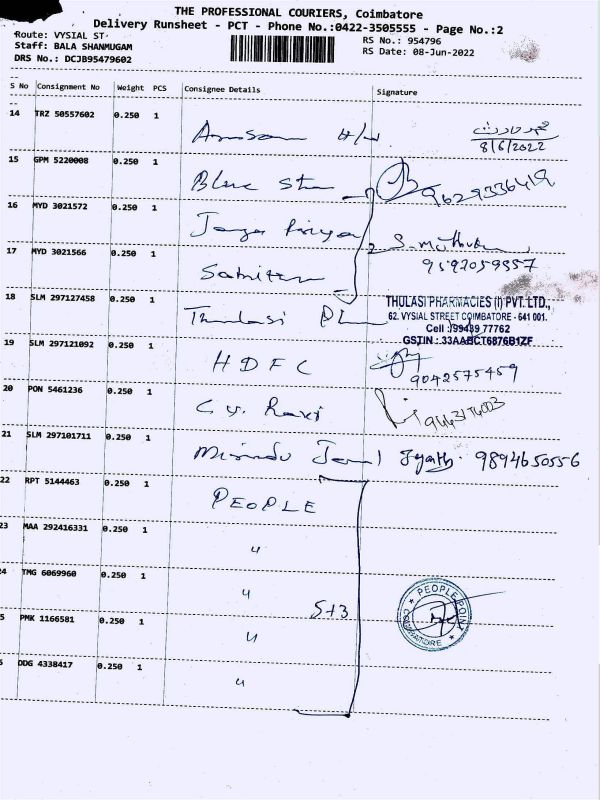 THE PROFESSIONAL COURIERS, Coimbatore
Delivery Runsheet - PCT - Phone No.:0422-3505555 - Page No.:2
Route: VYSIAL ST
Staff: BALA SHANMUGAM
DRS No.: DCJB95479602
RS No.: 954796
RS Date: 08-Jun-2022
S No Consignment No Weight PCS Consignee Details Signature
14 TRZ 50557602 0.250 1
8/6/2022
15 GPM 5220008 0.250 1 Blue Star 9629336419
16 MYD 3021572 0.250 1
17 MYD 3021566 0.250 1
9592059557
18 SLM 297127458 0.250 1 Thulasi
THULASI PHARMACIES (I) PVT. LTD.,
62. VYSIAL STREET COIMBATORE - 641 001.
Cell :99439 77762
GSTIN : 33AABCT6876B1ZF
19 SLM 297121092 0.250 1 HDFC 9042575459
20 PON 5461236 0.250 1
21 SLM 297101711 0.250 1 9894650556
22 RPT 5144463 0.250 1 PEOPLE
23 MAA 292416331 0.250 1 "
24 TMG 6069960 0.250 1 "
5+3
PEOPLE POINT
COIMBATORE
5 PMK 1166581 0.250 1 "
6 DDG 4338417 0.250 1 "